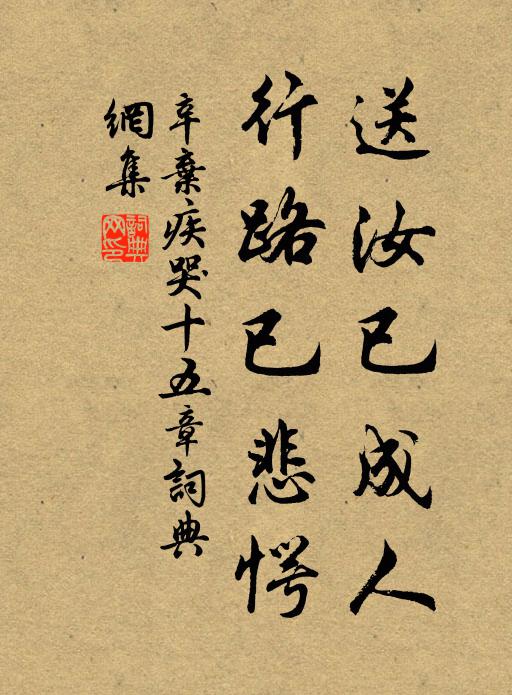 送汝已成人
行路已悲愕
辛棄疾哭十五章詞典
網集
詞典網印